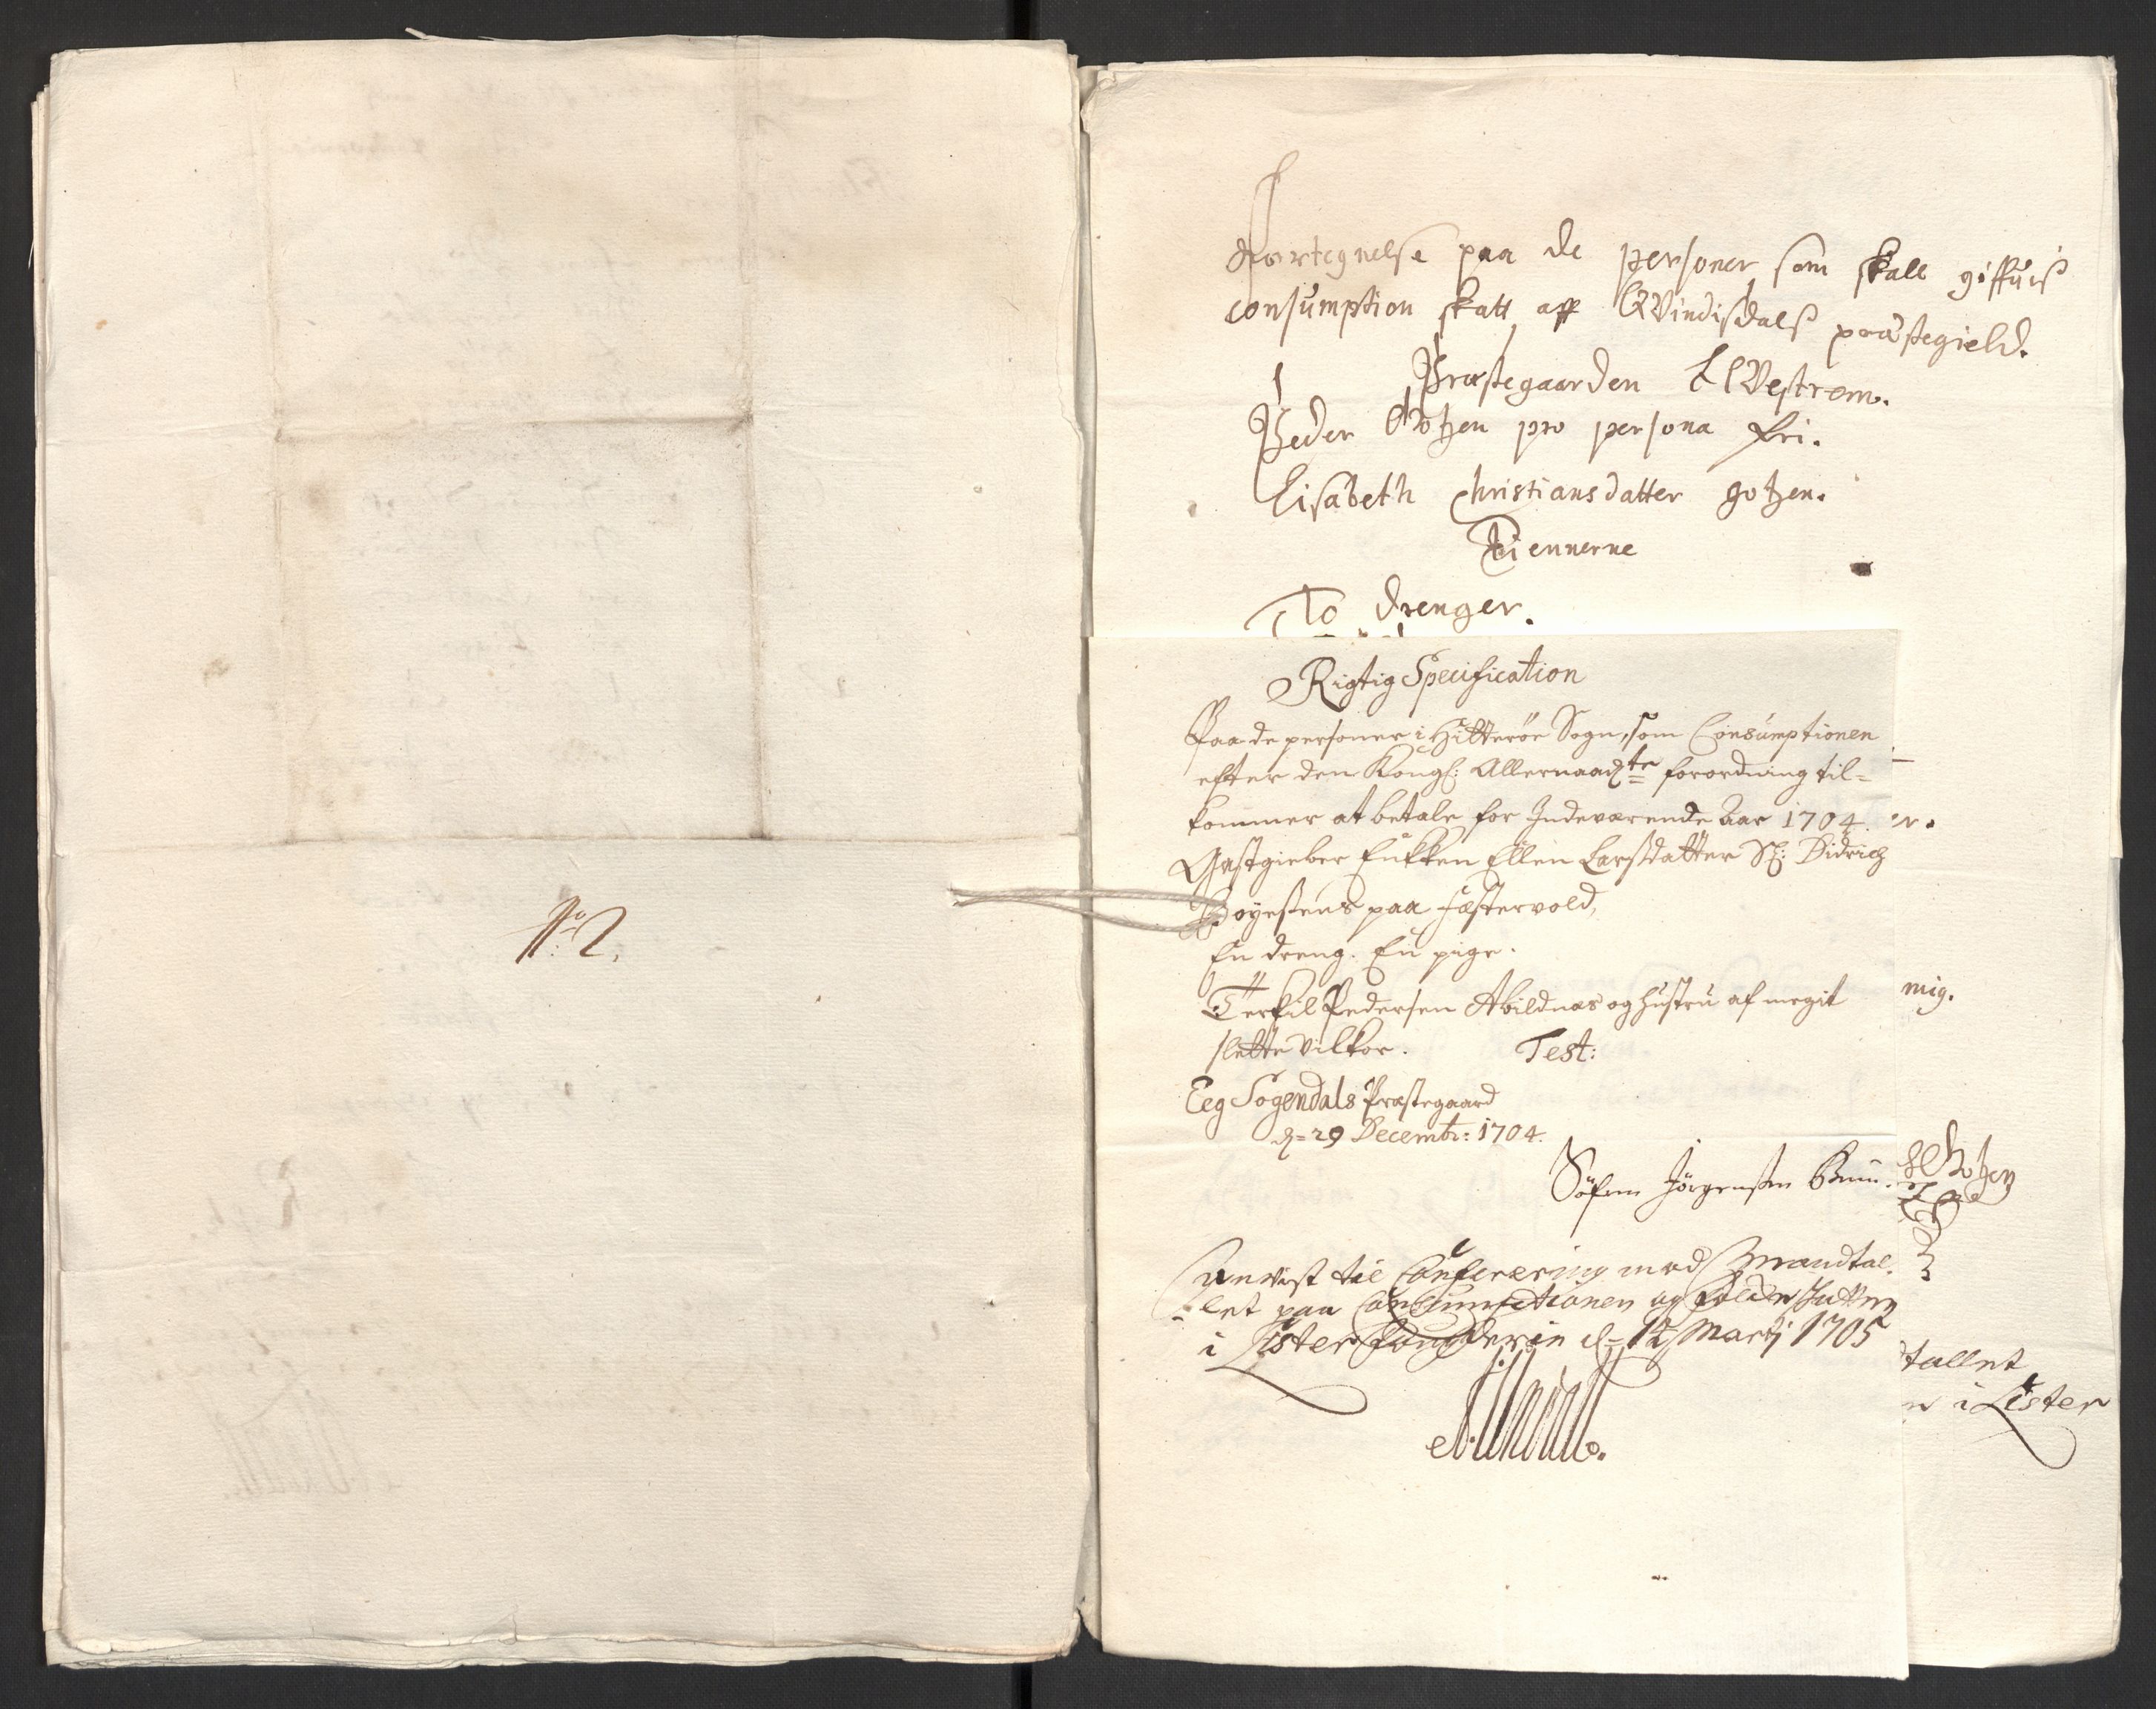 No 2.
Fortegnelse paa de personer som skall giffuiß
consumption skatt aff QVindisdalß præstegield.
Præstegaarden LVestrem.
Peder Gotzen pro persona fri.
Elisabeth Christiansdatter gotzen.
Tiennerne
To drenger.
Rigtig Specification
Paa de personer i Hitterøe Sogn, som Consumptionen
efter den Kongl: Allernaadte forordning til-
kommer at betale for Indeværende Aar 1704.
Gastgieber Enkken Ellen Larsdatter Sl: Didrich
Boyesens paa Fæstervold,
En dreng. En pige.
Terkil Pedersen Abildnæs og hustru af megit
slette vilkor. Test:
Eeg Sogendals Præstegaard
d= 29 Decembr: 1704.
Søfren Jørgensen Bruu.
Anvist til Confere­ring med Mandtal-
let paa Consumptionen og Folche Skatten
i Lister Fougderie d= 12 Martj 1705
er.
mig.
Gotzen
tallet
i Lister